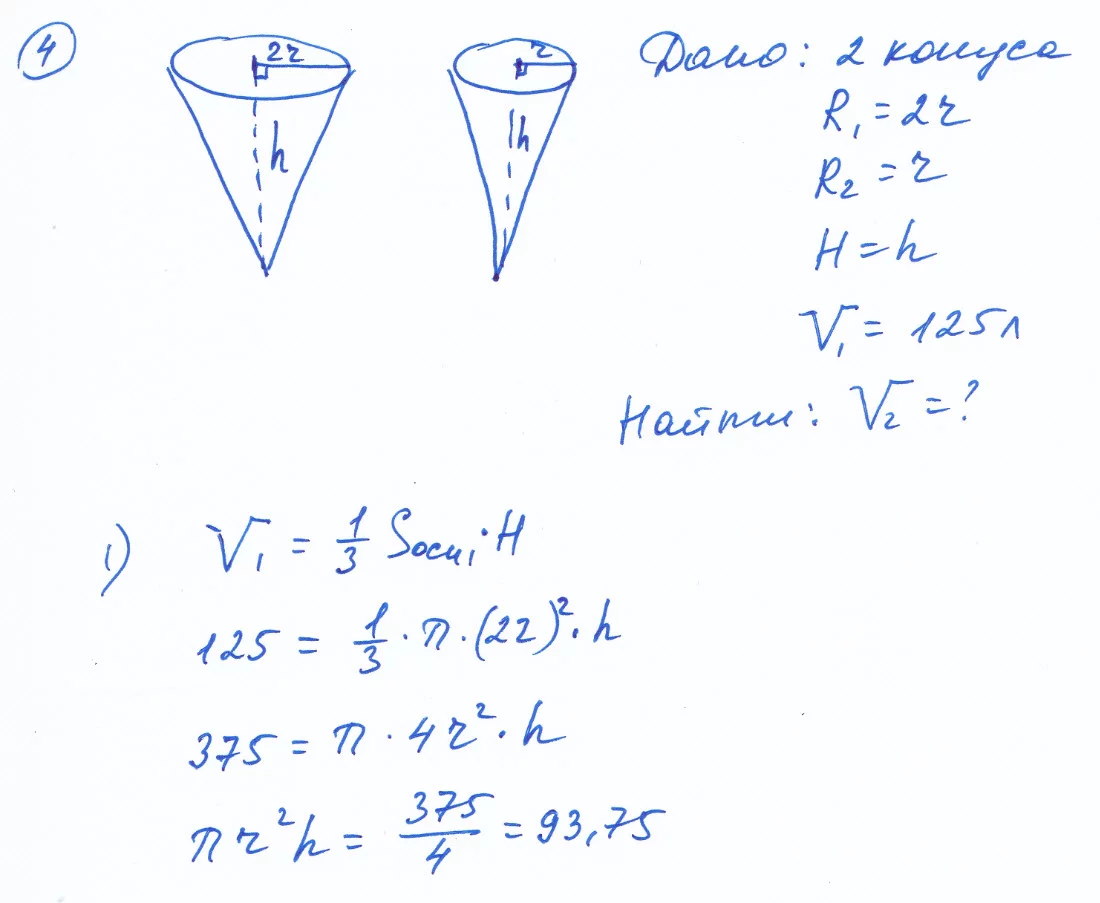 4
2r
h
r
h
Дано: 2 конуса
R₁ = 2r
R₂ = r
H = h
V₁ = 125 л
Найти: V₂ = ?
1) V₁ = 1/3 Sосн₁ · H
125 = 1/3 · π · (2r)² · h
375 = π · 4r² · h
πr²h = 375/4 = 93,75